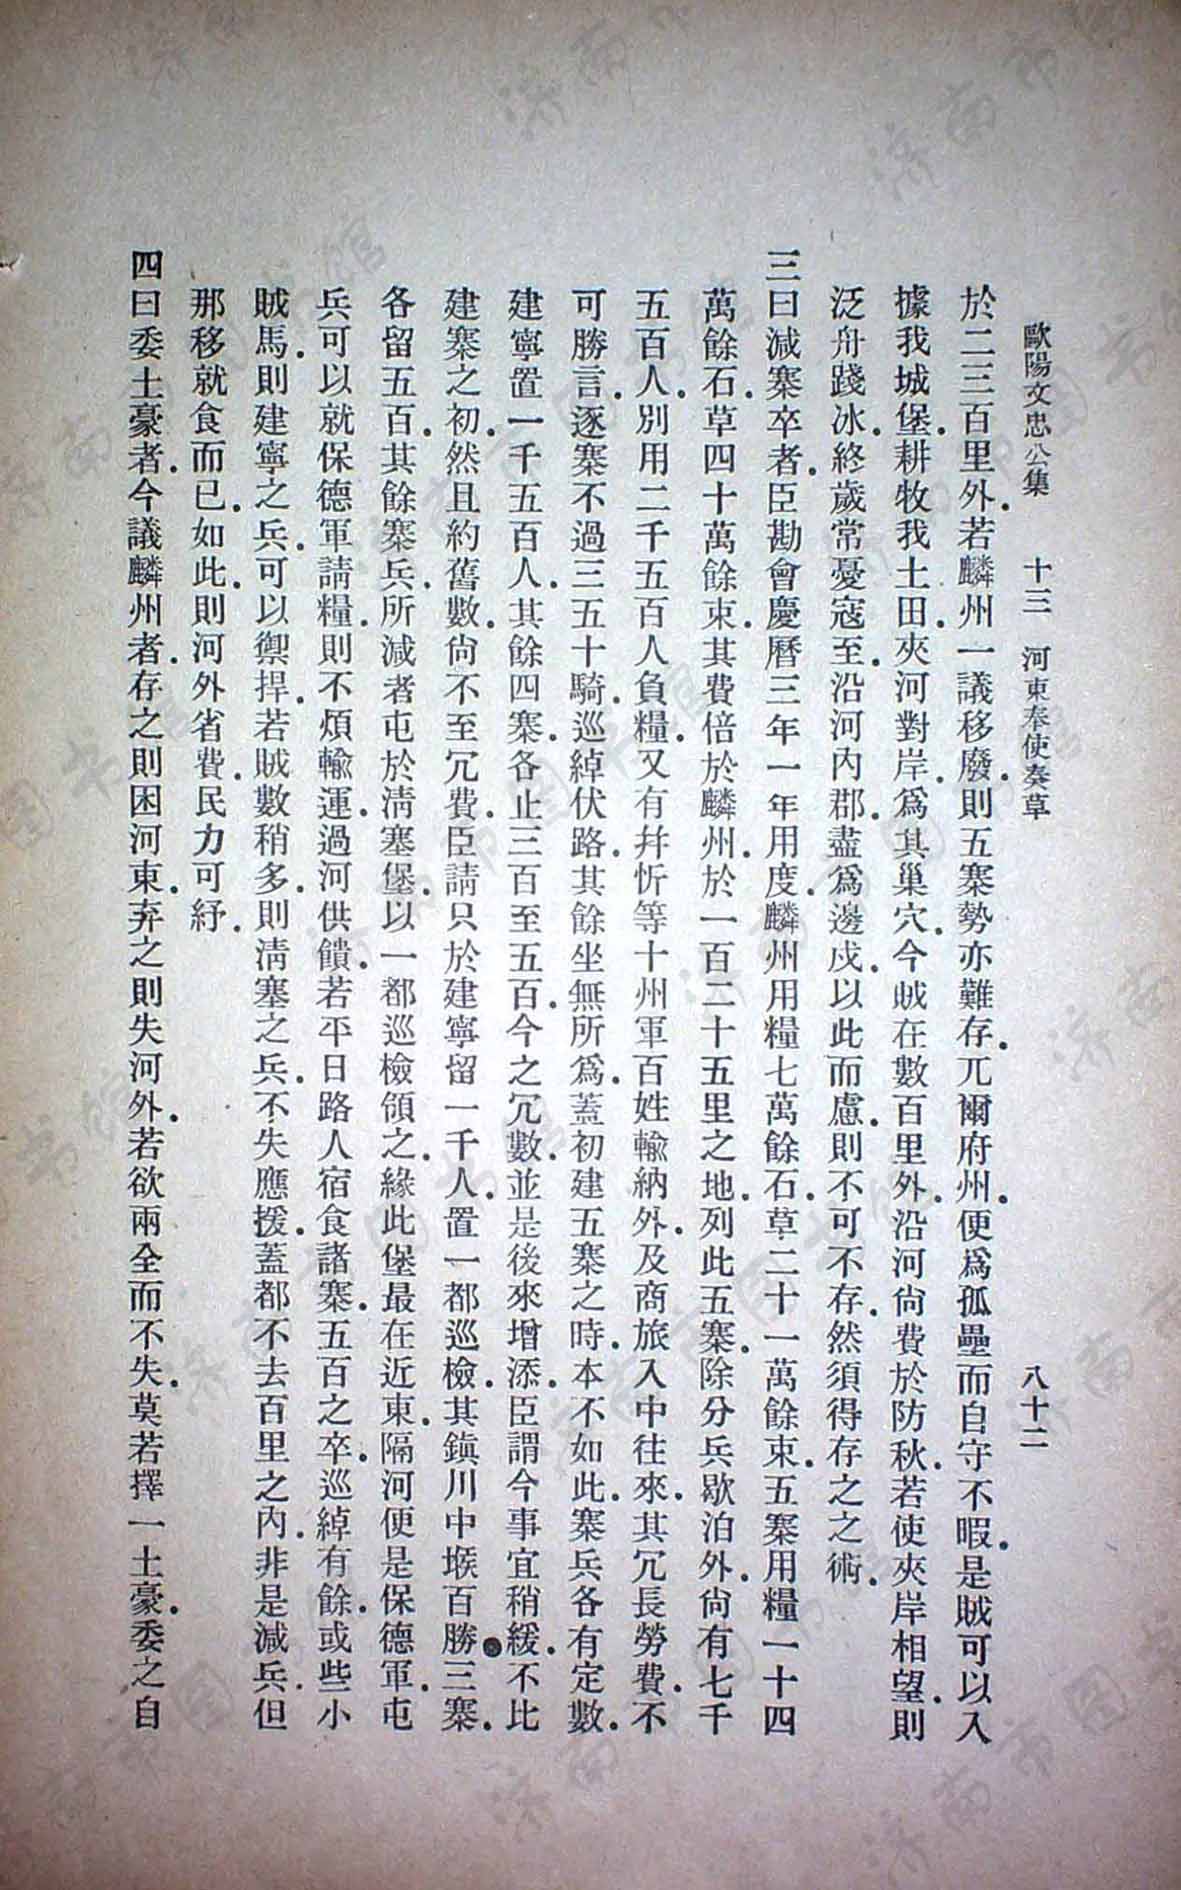 歐陽文忠公集　十三　河東奉使奏草　八十二
於二三百里外．若麟州一議移廢．則五寨勢亦難存．兀爾府州．便爲孤壘．而自守不暇．是賊可以入
據我城堡．耕牧我土田．夾河對岸．爲其巢穴．今賊在數百里外．沿河尙費於防秋．若使夾岸相望．則
泛舟踐冰．終歲常憂寇至．沿河內郡．盡爲邊戍．以此而慮．則不可不存．然須得存之之術．
三曰減寨卒者．臣勘會慶曆三年一年用度．麟州用糧七萬餘石．草二十一萬餘束．五寨用糧一十四
萬餘石．草四十萬餘束．其費倍於麟州．於一百二十五里之地．列此五寨．除分兵歇泊外．尙有七千
五百人．別用二千五百人負糧．又有幷忻等十州軍百姓輸納．外及商旅入中往來．其冗長勞費．不
可勝言．逐寨不過三五十騎．巡綽伏路．其餘坐無所爲．蓋初建五寨之時．本不如此．寨兵各有定數．
建寧置一千五百人．其餘四寨．各止三百至五百．今之冗數．並是後來增添．臣謂今事宜稍緩．不比
建寨之初．然且約舊數．尙不至冗費．臣請只於建寧留一千人．置一都巡檢．其鎭川中堠百勝三寨．
各留五百．其餘寨兵．所減者屯於淸塞堡．以一都巡檢領之．緣此堡最在近東．隔河便是保德軍．屯
兵可以就保德軍請糧．則不煩輸運．過河供饋．若平日路人宿食諸寨．五百之卒．巡綽有餘．或些小
賊馬．則建寧之兵．可以禦捍．若賊數稍多．則淸塞之兵．不失應援．蓋都不去百里之內．非是減兵．但
那移就食而已．如此．則河外省費．民力可紓．
四曰委土豪者．今議麟州者．存之則困河東．弃之則失河外．若欲兩全而不失．莫若擇一土豪．委之自